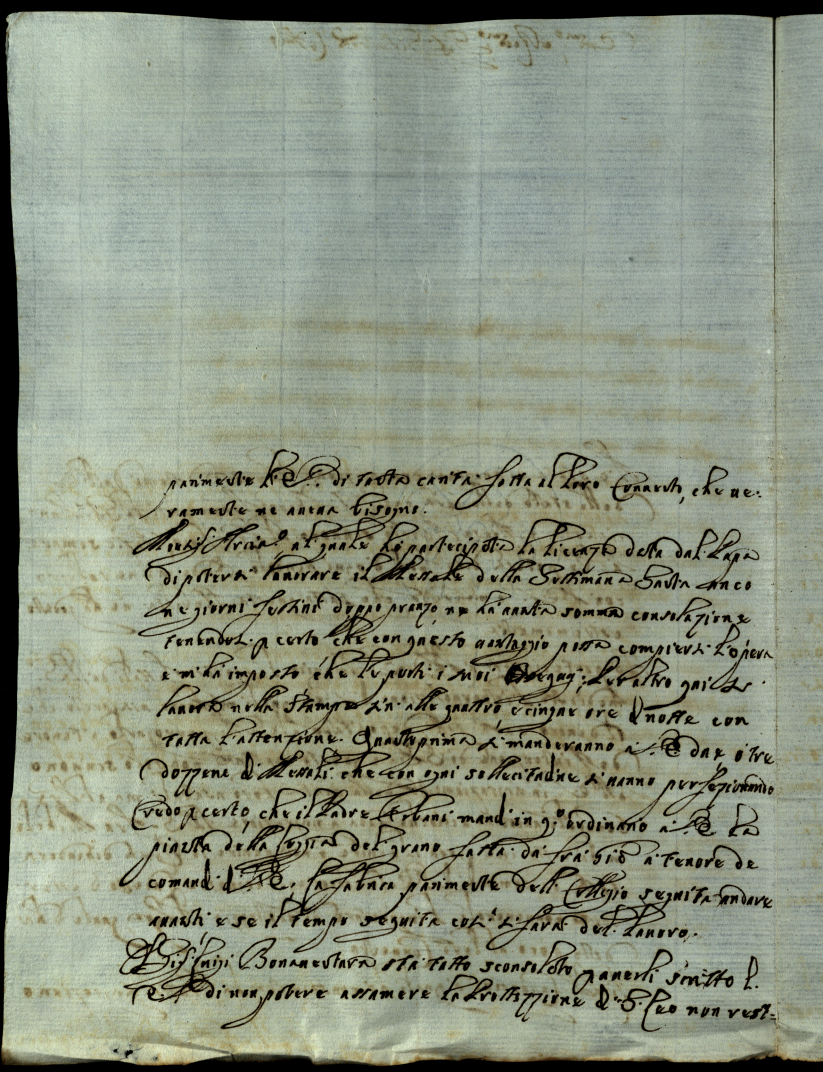 parimente l'E. V. di tanta carità fatta al loro Convento, che ve-
ramente ne aveva bisogno.
al quale ho partecipata la licenza data dal Papa
di potersi lavorare il Messale della Settimana Santa anco
ne giorni festivi doppo pranzo ne ha avuta somma consolazione
tenendosi p certo che con questo vantaggio possa compiersi l'opera
e m'ha imposto che le porti i suoi ossequij; Per altro qui si
lavora nella Stampa sin alle quattro e cinque ore di notte con
tutta l'attenzione. Quanto prima si manderanno a V. E. due o tre
dozzene di Messali che con ogni sollecitudine si vanno perfezionando
Credo p certo, che il Padre Urbani mandi in q.o ordinario a V. E. la
pianta della del grano fatta da frà Gio a tenore de
comandi di V. E. La fabrica parimente del Collegio seguita andare
avanti e se il tempo seguita così si farà del lavoro.
Luigi Bonaventura sta tutto sconsolato p averli scritto l.
E. V. di non potere assumere la Protezzione di S. Leo non rest-